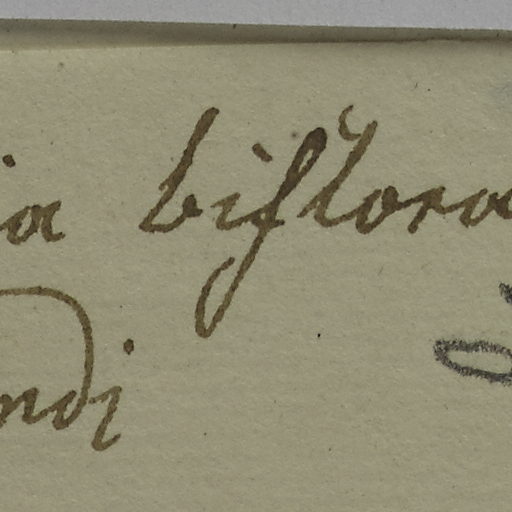 ia biflora
ndj